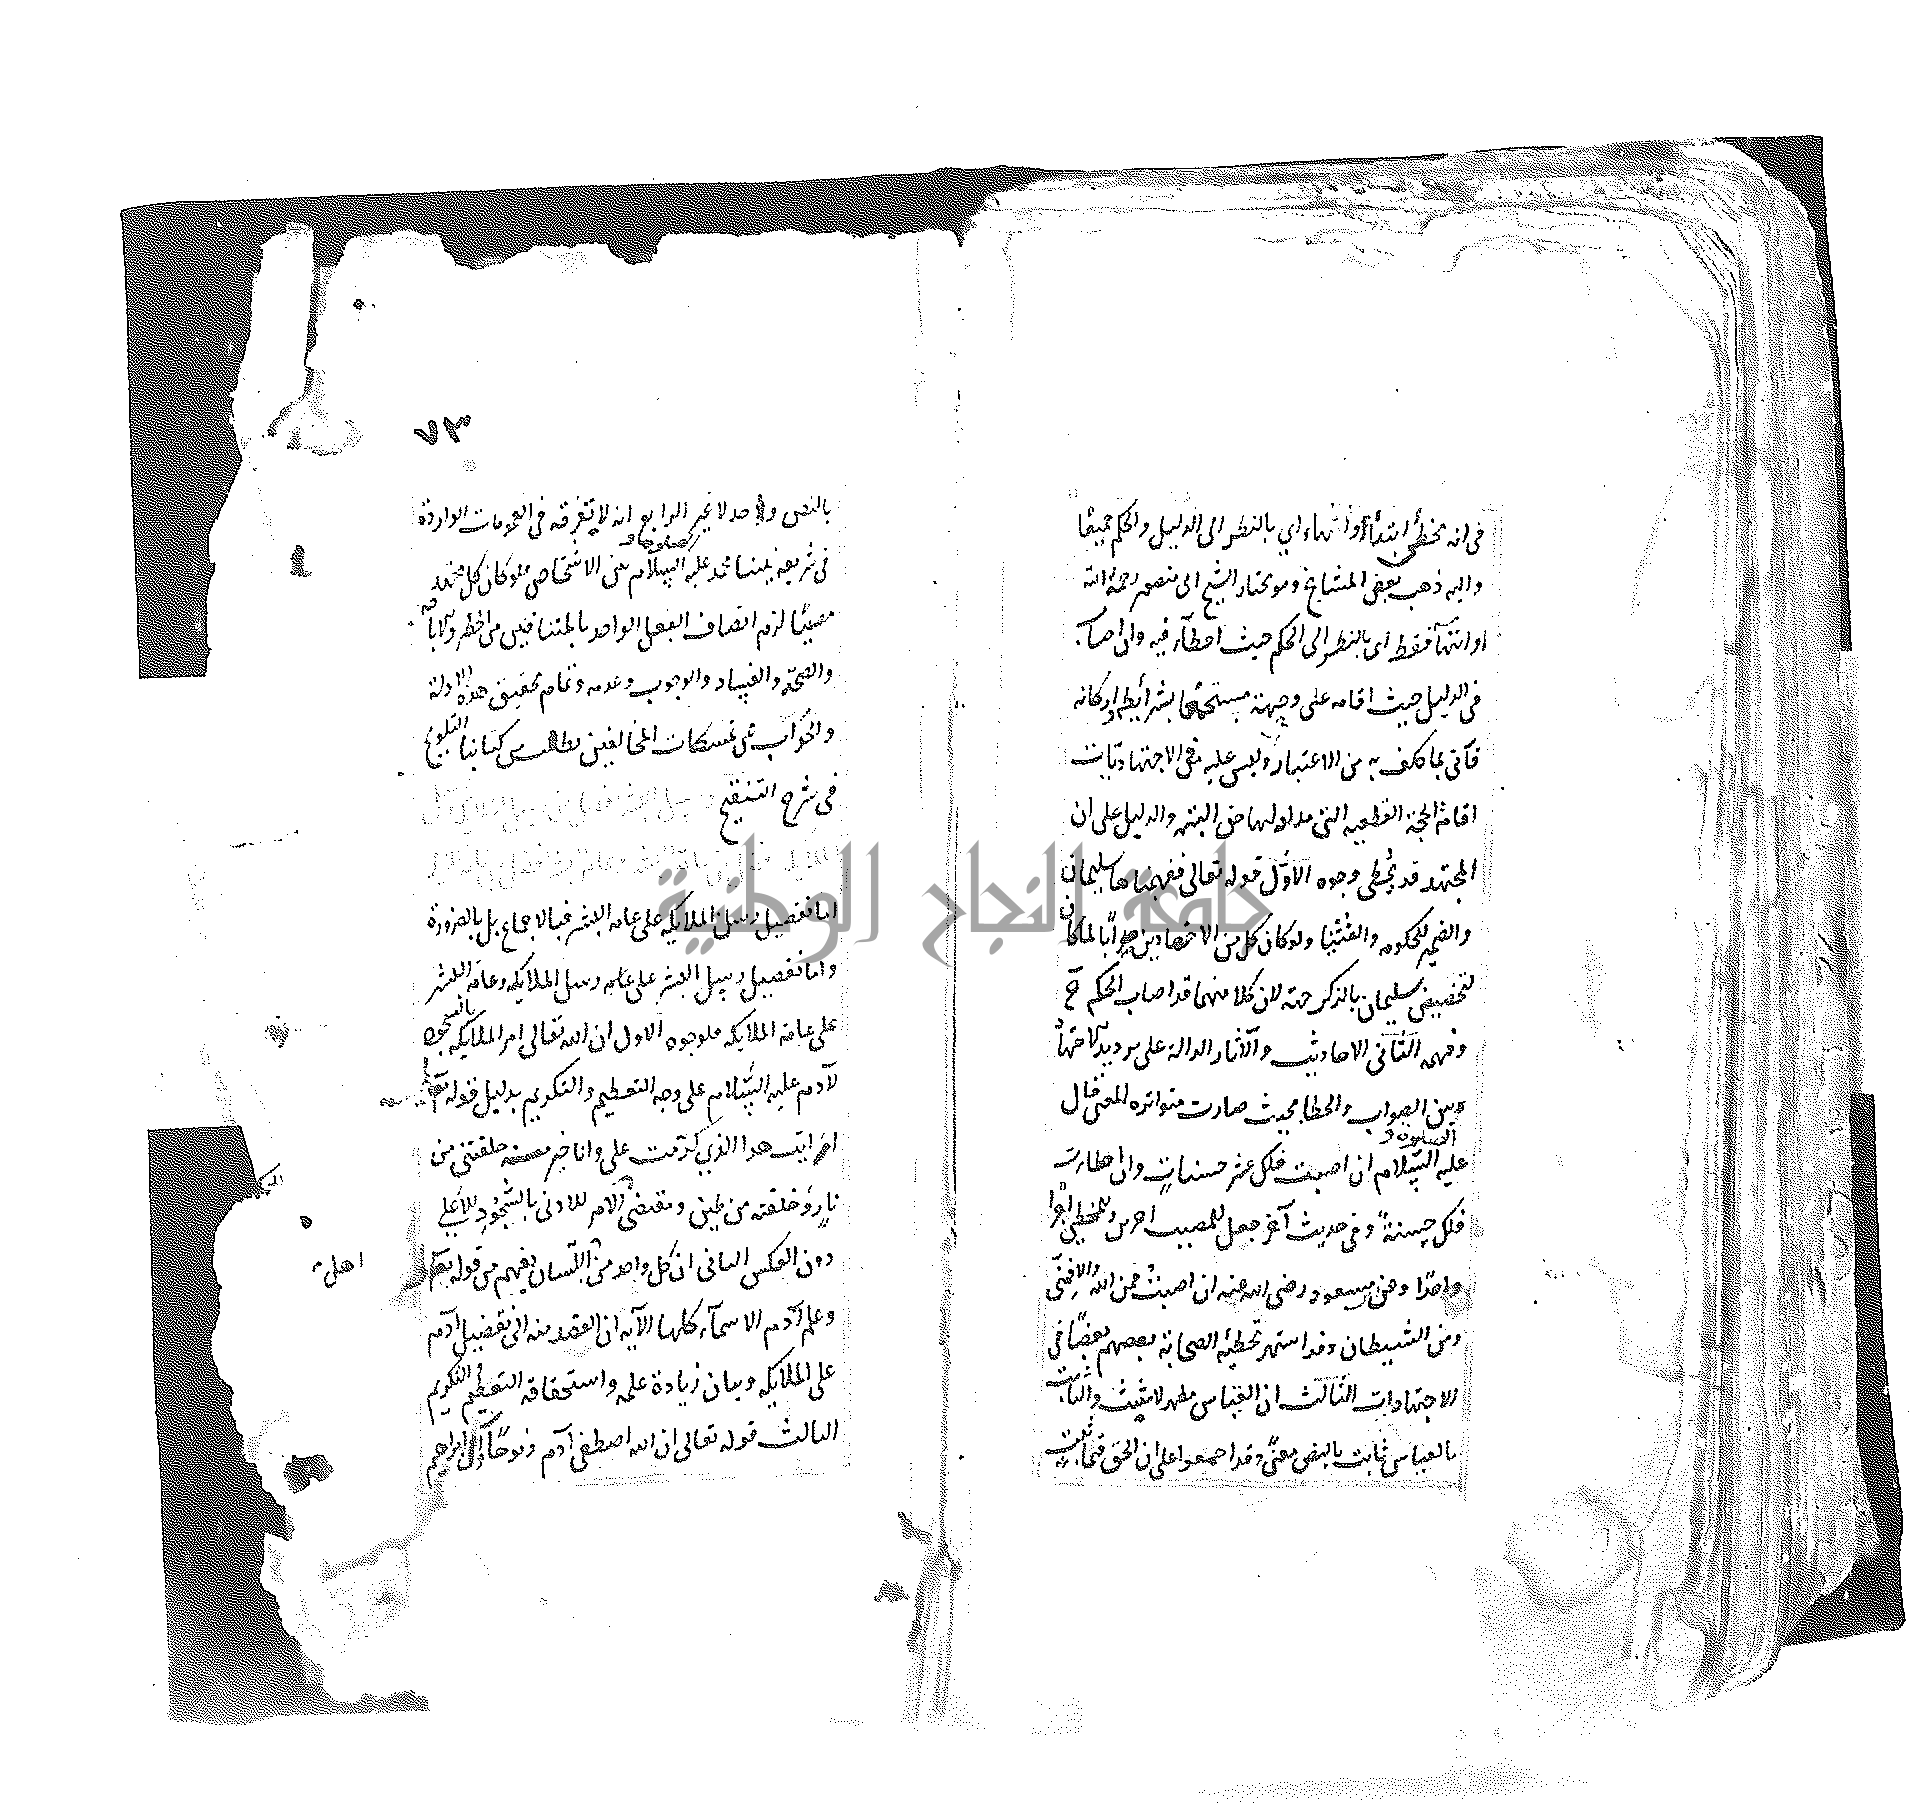 في انه مخطئ ابتداءً وانتهاء اي بالنظر الى الدليل والحكم جميعًا
واليه ذهب بعض المشايخ وهو مختار الشيخ ابى منصور رحمة الله
او انتهآ فقط اى بالنظر الى الحكم حيث اخطأ فيه وان اصاب
فى الدليل حيث اقامه على وجهه مستجمعًا بشرايطه واركانه
فآتى بما كلف به من الاعتبار وليس عليه فى الاجتهاديات
اقامة الحجة القطعيه التى مدلولها حق البته والدليل على ان
المجتهد قد يخطى وجوه الاوّل قوله تعالى ففهمناها سليمان
والضمير للحكومه والفتيا ولو كان كل من الاجتهادين صوابًا لما كان
لتخصيص سليمان بالذكر جهة لان كلا منهما قد اصاب الحكم ح
وفهمه الثانى الاحاديث والآثار الدالة على ترديد الاجتهاد
بين الصواب والخطا بحيث صارت متواتره المعنى قال
عليه الصلوة و السّلام ان اصبت فلك عشر حسنات وان اخطات
فلك حسنةً وفى حديث آخر جعل للمصيب اجرين وللمخطى اجرا
واحدًا وعن مسعود رضى الله عنه ان اصبتُ فمن الله والا فمنّى
ومن الشيطان وقد اشتهر تخطئة الصحابة بعضهم بعضًا فى
الاجتهادات الثالث ان القياس مظهر لا مثبت والثابت
بالقياس ثابت بالنص معنًى وقد اجمعوا على ان الحق فيما ثبت
٧٣
بالنص واحد لا غير الرابع انه لا تفرقه فى العمومات الواردة
فى شريعة نبينا محمد عليه الصلوة و السّلام بين الاشخاص فلو كان كل مجتهد
مصيبًا لزم اتصاف الفعل الواحد بالمتنافيين من الحظر والاباحه
والصحّة والفساد والوجوب وعدمه وتمام تحقيق هذه الادلة
والجواب عن تمسكات المخالفين يطلب من كتابنا التلويح
فى شرح التنقيح
اما تفضيل رسل الملايكه على عامة البشر فبالاجماع بل بالضرورة
واما تفضيل رسل البشر على رسل الملايكه وعامة البشر
على عامة الملايكه فلوجوه الاول ان الله تعالى امر الملايكه بالسجود
لآدم عليه السّلام على وجه التعظيم والتكريم بدليل قوله تعا
ارايت هذا الذي كرّمت على وانا خير منه خلقتنى من
نار وخلقته من طين ومقتضى الامر للادنى بالسُّجُود للاعلى
دون العكس الثانى ان كل واحد من اللسان يفهم من قوله تعا
اهل
وعلم آدم الاسمآء كلها الآيه ان القصد منه الى تفضيل آدم
على الملايكه وبيان زيادة علمه واستحقاقه التعظيم والتكريم
الثالث قوله تعالى ان الله اصطفى آدم ونوحًا وآل ابراهيم
جامعة النجاح الوطنية